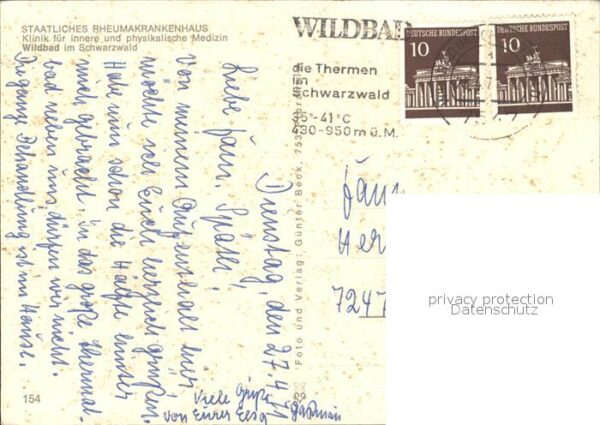 STAATLICHES RHEUMAKRANKENHAUS
Klinik für innere und physikalische Medizin
Wildbad im Schwarzwald
Dienstag, den 27.4.
Liebe Fam. Später!
Von meinem Aufenthalt hier
möchte ich Euch herzlich grüßen.
Habe nun schon die Hälfte hinter
mich gebracht. In das große Thermal-
bad neben uns dürfen wir nicht.
Behandlung ist im Hause.
Viele Grüße
von Eurer Elsa
154
Foto und Verlag: Günter Beck, 753
WILDBAD
die Thermen
im
Schwarzwald
35°-41°C
430-950m ü.M.
10
DEUTSCHE BUNDESPOST
10
DEUTSCHE BUNDESPOST
Fam.
Her
7247
privacy protection
Datenschutz